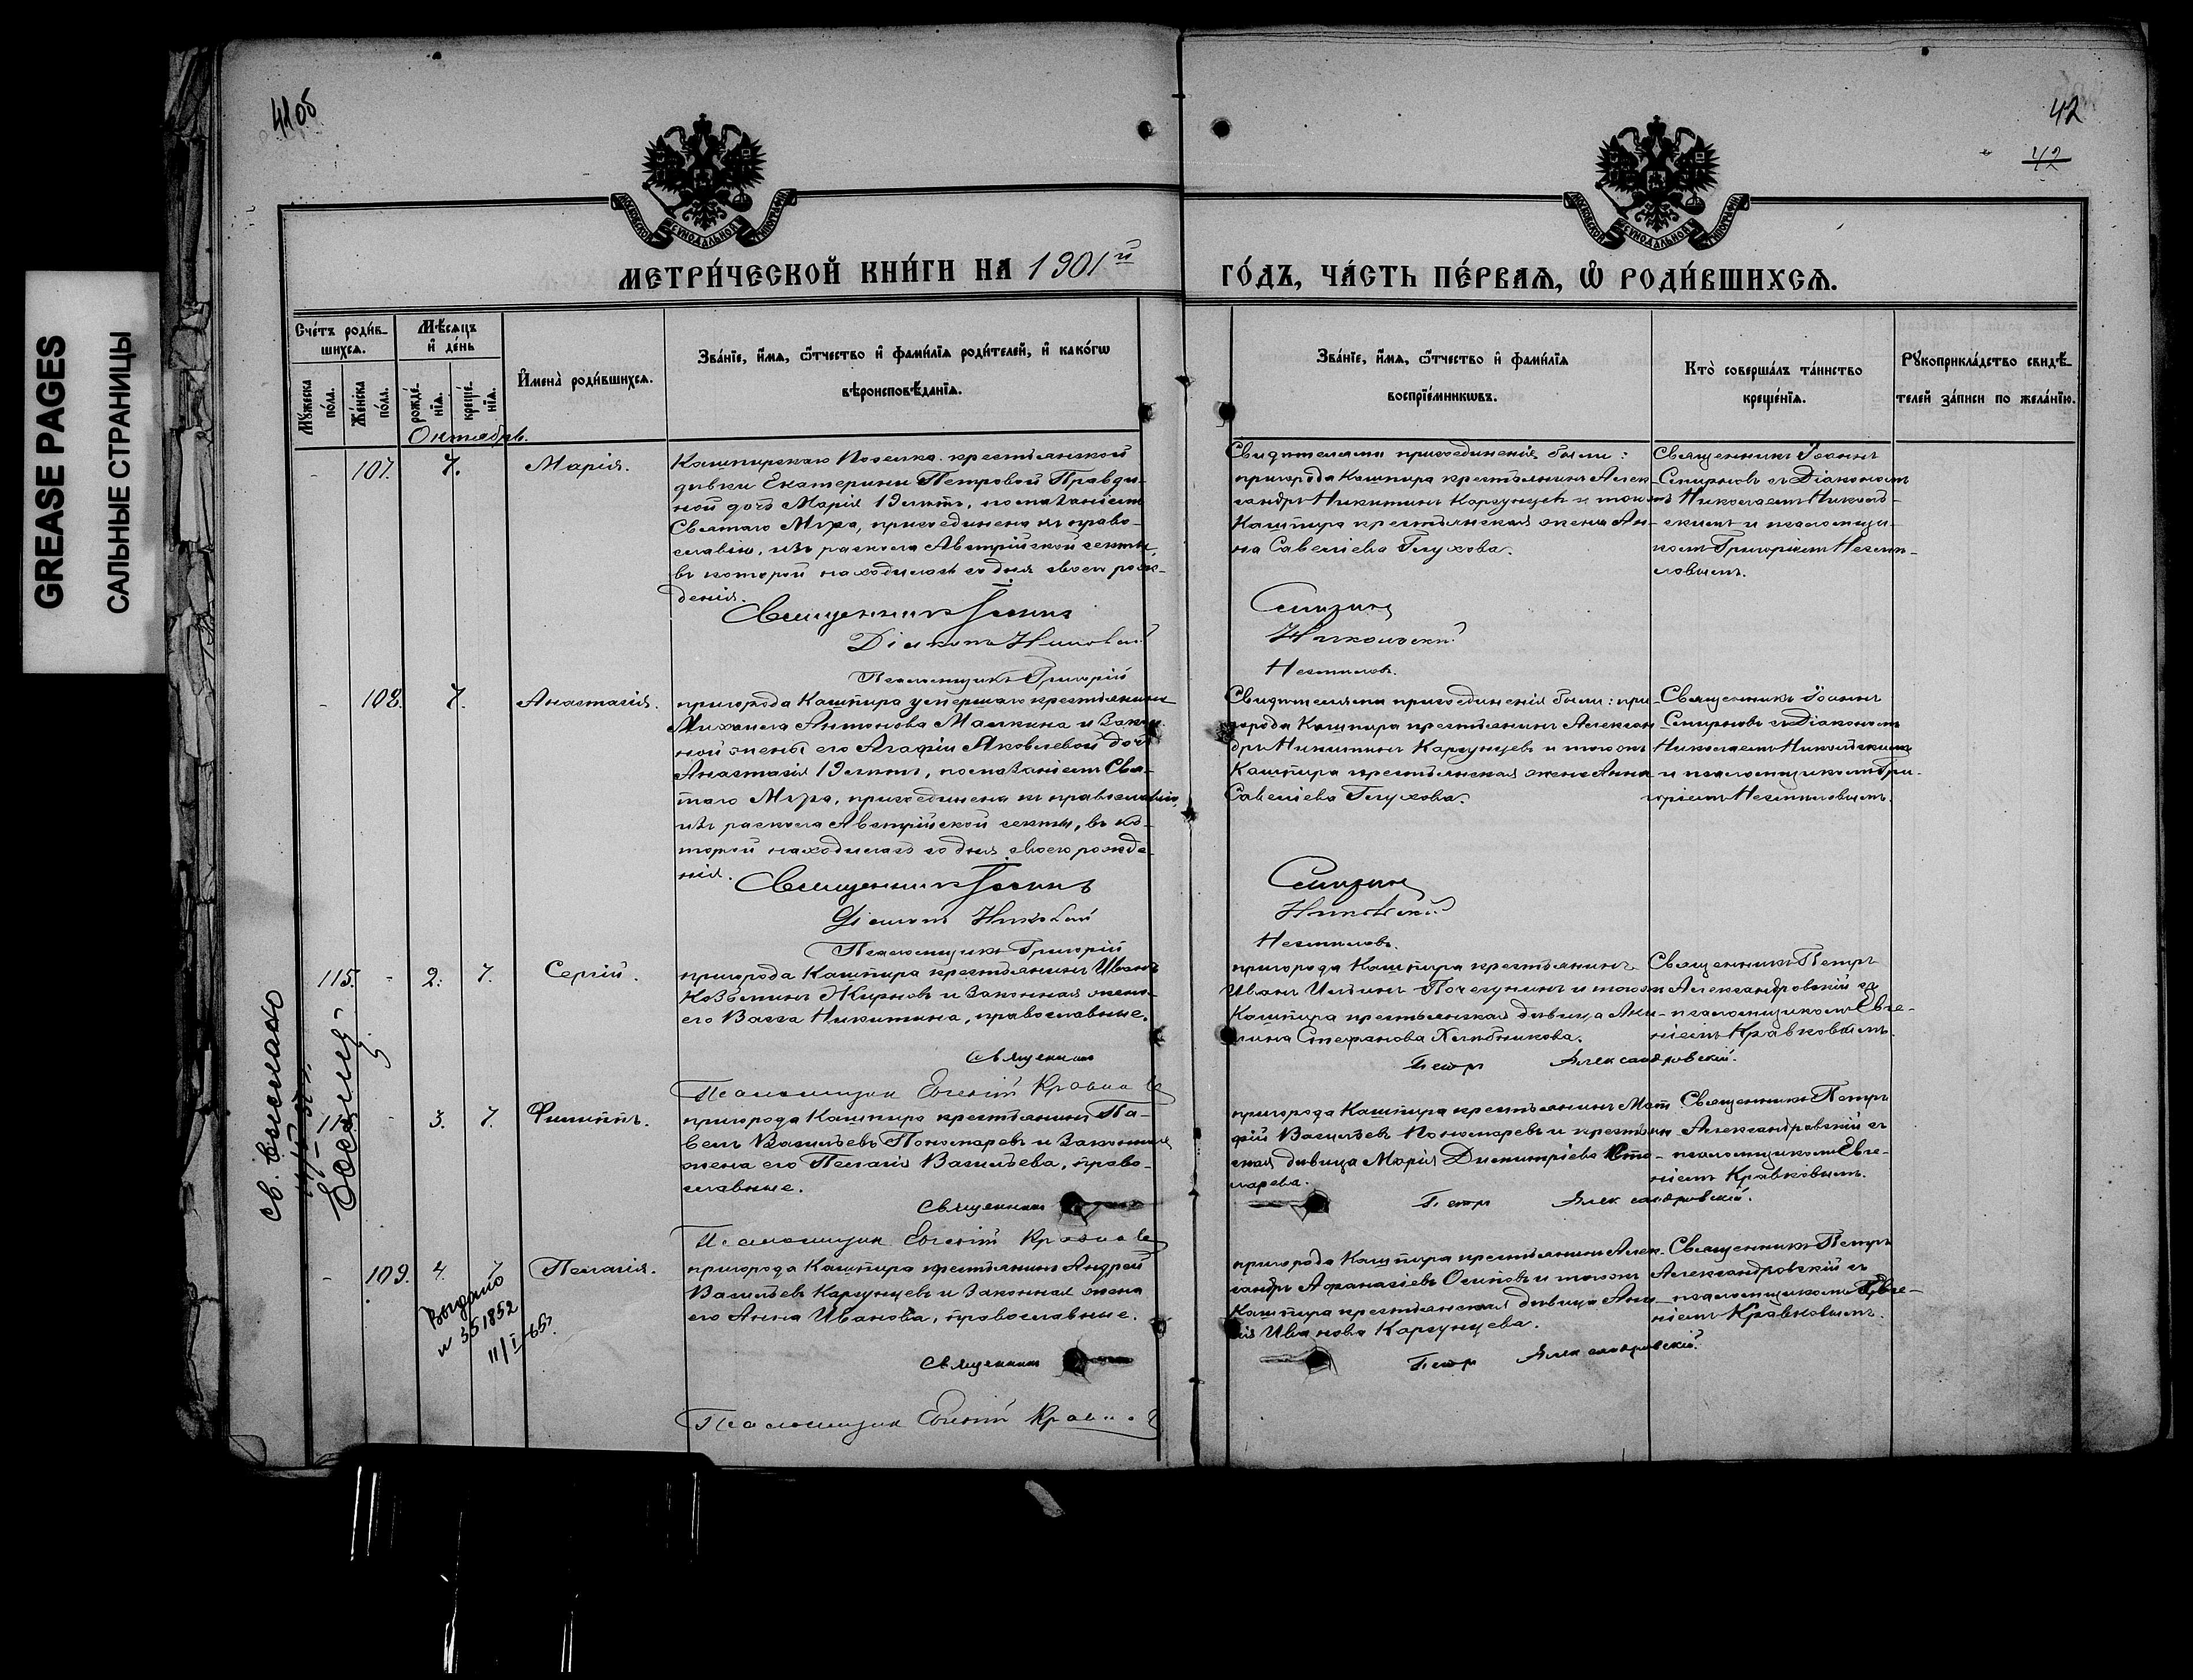 GREASE PAGES
САЛЬНЫЕ СТРАНИЦЫ
41об
42
42
МОСКОВСКОЙ СѴНОДАЛЬНОЙ ТИПОГРАФІИ
МОСКОВСКОЙ СѴНОДАЛЬНОЙ ТИПОГРАФІИ
МЕТРИ́ЧЕСКОЙ КНИ́ГИ НА 1901й
ГО́ДЪ, ЧА́СТЬ ПЕ́РВАѦ, Ѡ҆ РОДИ́ВШИХСѦ.
Сче́тъ роди́в-
шихсѧ.
Мꙋ́жеска по́ла.
Же́нска по́ла.
Мѣ́сѧцъ
и҆ де́нь
рожде́-
нїѧ.
креще́-
нїѧ.
И҆мена̀ роди́вшихсѧ.
Зва́нїе, и҆́мѧ, ѻ҆́тчество и҆ фами́лїѧ роди́телей, и҆ како́гѡ
вѣроисповѣ́данїѧ.
Зва́нїе, и҆́мѧ, ѻ҆́тчество и҆ фами́лїѧ
воспрїе́мникѡвъ.
Кто̀ соверша́лъ та́инство
креще́нїѧ.
Рꙋкоприкла́дство свидѣ́-
телей за́писи по жела́нїю.
Октябрь.
- 107. 7. Марія.
Кашпирскаго Поселка крестьянской
дѣвки Екатерины Петровой Правди-
ной дочь Марія 19 лѣтъ, помазаніемъ
Святаго Мѵра, присоединена къ право-
славію, изъ раскола Австрійской секты,
въ которой находилась со дня своего рож-
денія.
Священникъ Іоаннъ
Діаконъ Николай
Псаломщикъ Григорій
Свидѣтелями присоединенія были:
пригорода Кашпира крестьянинъ Алек-
сандръ Никитинъ Каргунцевъ и того же
Кашпира крестьянская жена Ан-
на Савельева Глухова.
Смирнов
Никольскій
Несмѣловъ.
Священникъ Іоаннъ
Смирновъ съ Діакономъ
Николаемъ Николь-
скимъ и псаломщи-
комъ Григоріемъ Несмѣ-
ловымъ.
- 108. 7. Анастасія.
пригорода Кашпира умершаго крестьянина
Михаила Антонова Малкина и закон-
ной жены его Агафіи Яковлевой дочь
Анастасія 19 лѣтъ, помазаніемъ Свя-
таго Мѵра, присоединена къ православію,
изъ раскола Австрійской секты, въ ко-
торой находилась со дня своего рожде-
нія.
Священникъ Іоаннъ
Діаконъ Николай
Псаломщикъ Григорій
Свидѣтелями присоединенія были: при-
города Кашпира крестьянинъ Алексан-
дръ Никитинъ Каргунцевъ и того же
Кашпира крестьянская жена Анна
Савельева Глухова.
Смирнов
Никольскій
Несмѣловъ.
Священникъ Іоаннъ
Смирновъ съ Діакономъ
Николаемъ Никольскимъ
и псаломщикомъ Гри-
горіемъ Несмѣловымъ.
115. - 2. 7. Сергій.
пригорода Кашпира крестьянинъ Иванъ
Козьминъ Жирновъ и законная жена
его Васса Никитина, православные.
Священникъ
Псаломщикъ Евгеній Кравков
пригорода Кашпира крестьянинъ
Иванъ Ильинъ Почегунинъ и того же
Кашпира крестьянская дѣвица
Стефанова Хлѣбникова.
Петръ Александровскій.
Священникъ Петръ
Александровскій съ
псаломщикомъ Евге-
ніемъ Кравковымъ.
- 3. 7. Филиппъ.
пригорода Кашпира крестьянинъ Па-
велъ Васильевъ Пономаревъ и законная
жена его Пелагія Васильева, право-
славные.
Священникъ
Псаломщикъ Евгеній Кравков
пригорода Кашпира крестьянинъ Мат-
фій Васильевъ Пономаревъ и крестьян-
ская дѣвица Марія Димитріева Сто-
ларева.
Петръ Александровскій.
Священникъ Петръ
Александровскій съ
псаломщикомъ Евге-
ніемъ Кравковымъ.
- 109. 4. 7 Пелагія.
пригорода Кашпира крестьянинъ Андрей
Васильевъ Каргунцевъ и законная жена
его Анна Иванова, православные.
Священникъ
Псаломщикъ Евгеній Кравков
пригорода Кашпира крестьянинъ Алек-
сандръ Аѳанасіевъ Осиповъ и того же
Кашпира крестьянская дѣвица
Иванова Каргунцева.
Петръ Александровскій.
Священникъ Петръ
Александровскій съ
псаломщикомъ Евге-
ніемъ Кравковымъ.
св. выслано
Выдано
и 351852
11/I-65г.